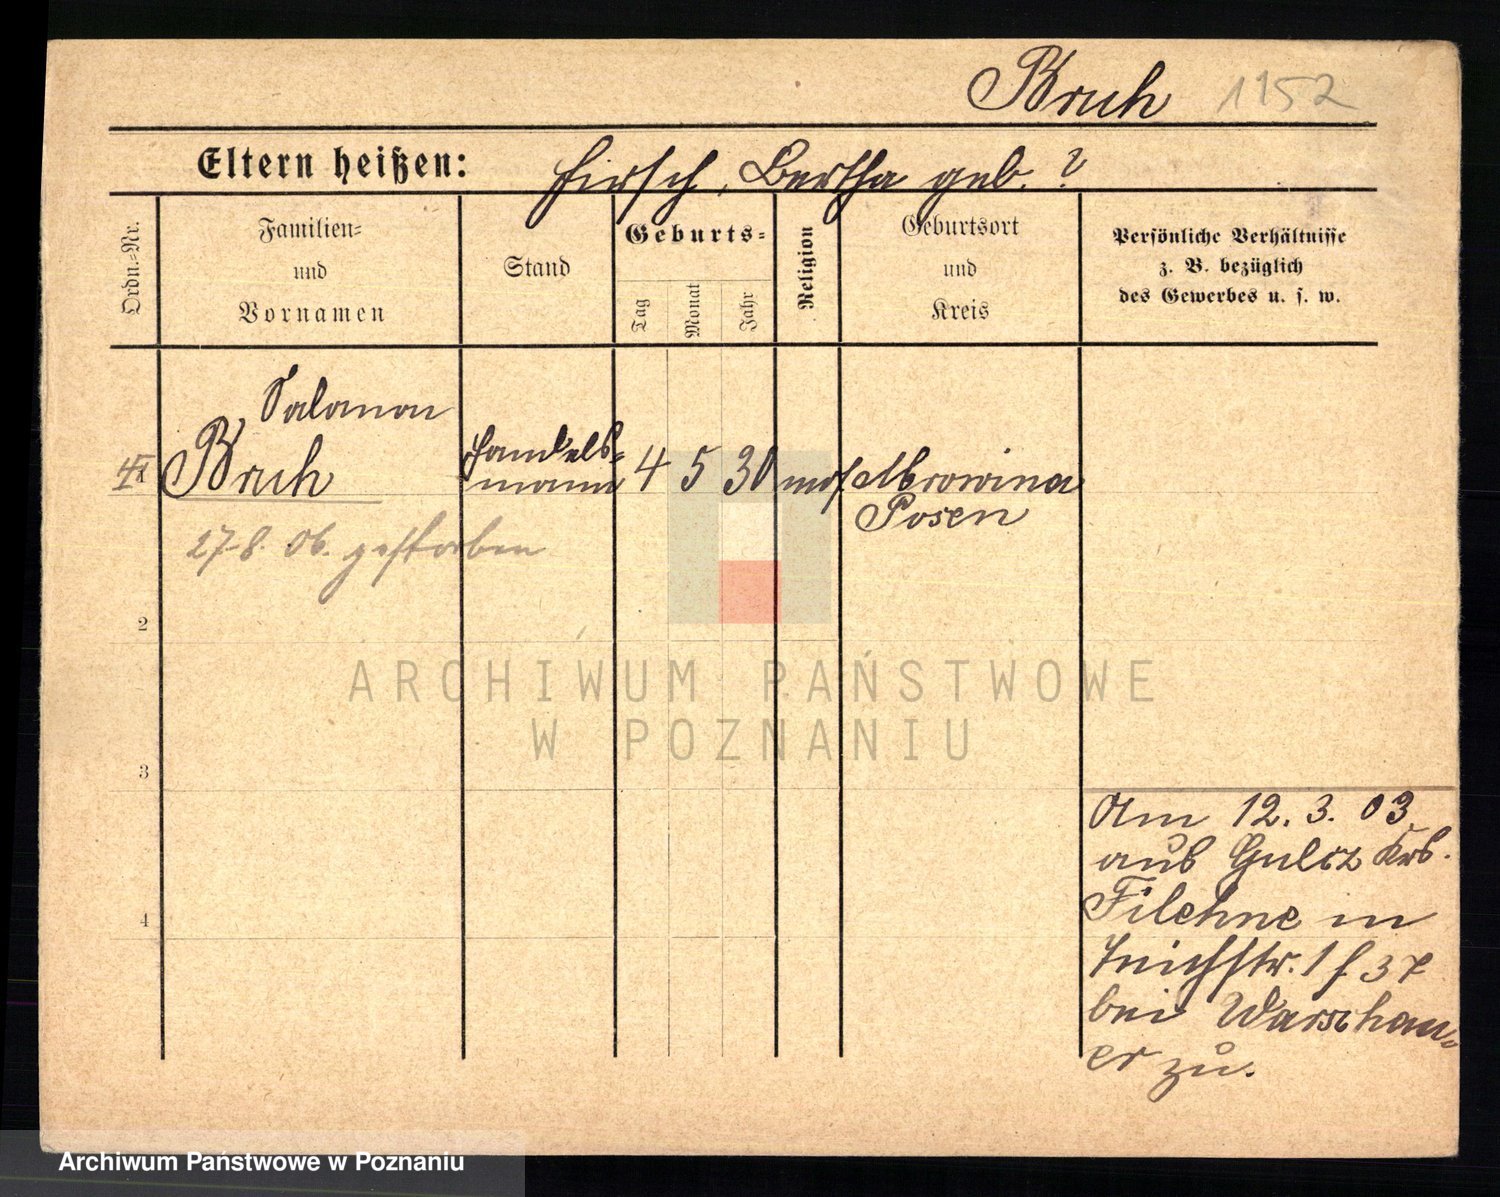 Bruh 1152
Eltern heißen: Hirsch, Bertha geb. ?
Ordn.-Nr.
Familien-
und
Vornamen
Stand
Geburts-
Tag
Monat
Jahr
Religion
Geburtsort
und
Kreis
Persönliche Verhältnisse
z. B. bezüglich
des Gewerbes u. s. w.
Salomon
Bruh
Handels-
mann
4 5 30
mos.
Mrowina
Posen
27.8. 06. gestorben
2
3
4
Am 12. 3. 03
aus Gulcz Krs.
Filehne in
1 f 37
bei Warschau-
er zu.
ARCHIWUM PAŃSTWOWE
W POZNANIU
Archiwum Państwowe w Poznaniu